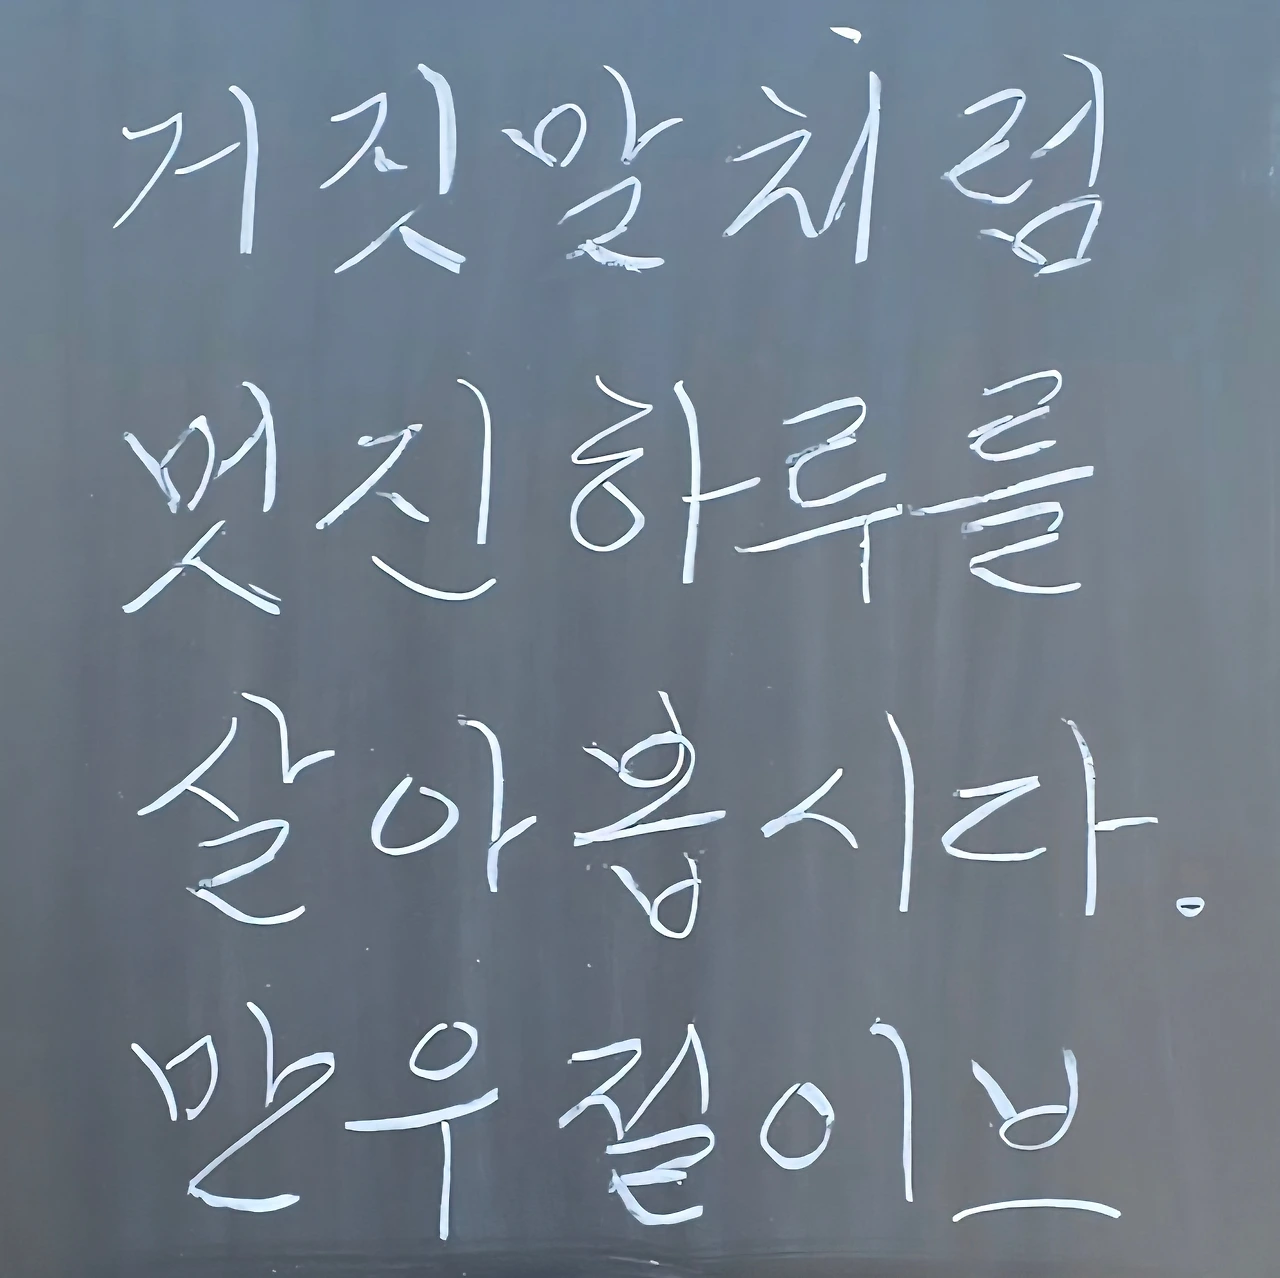 거짓말처럼
멋진 하루를
살아봅시다.
만우절 이브